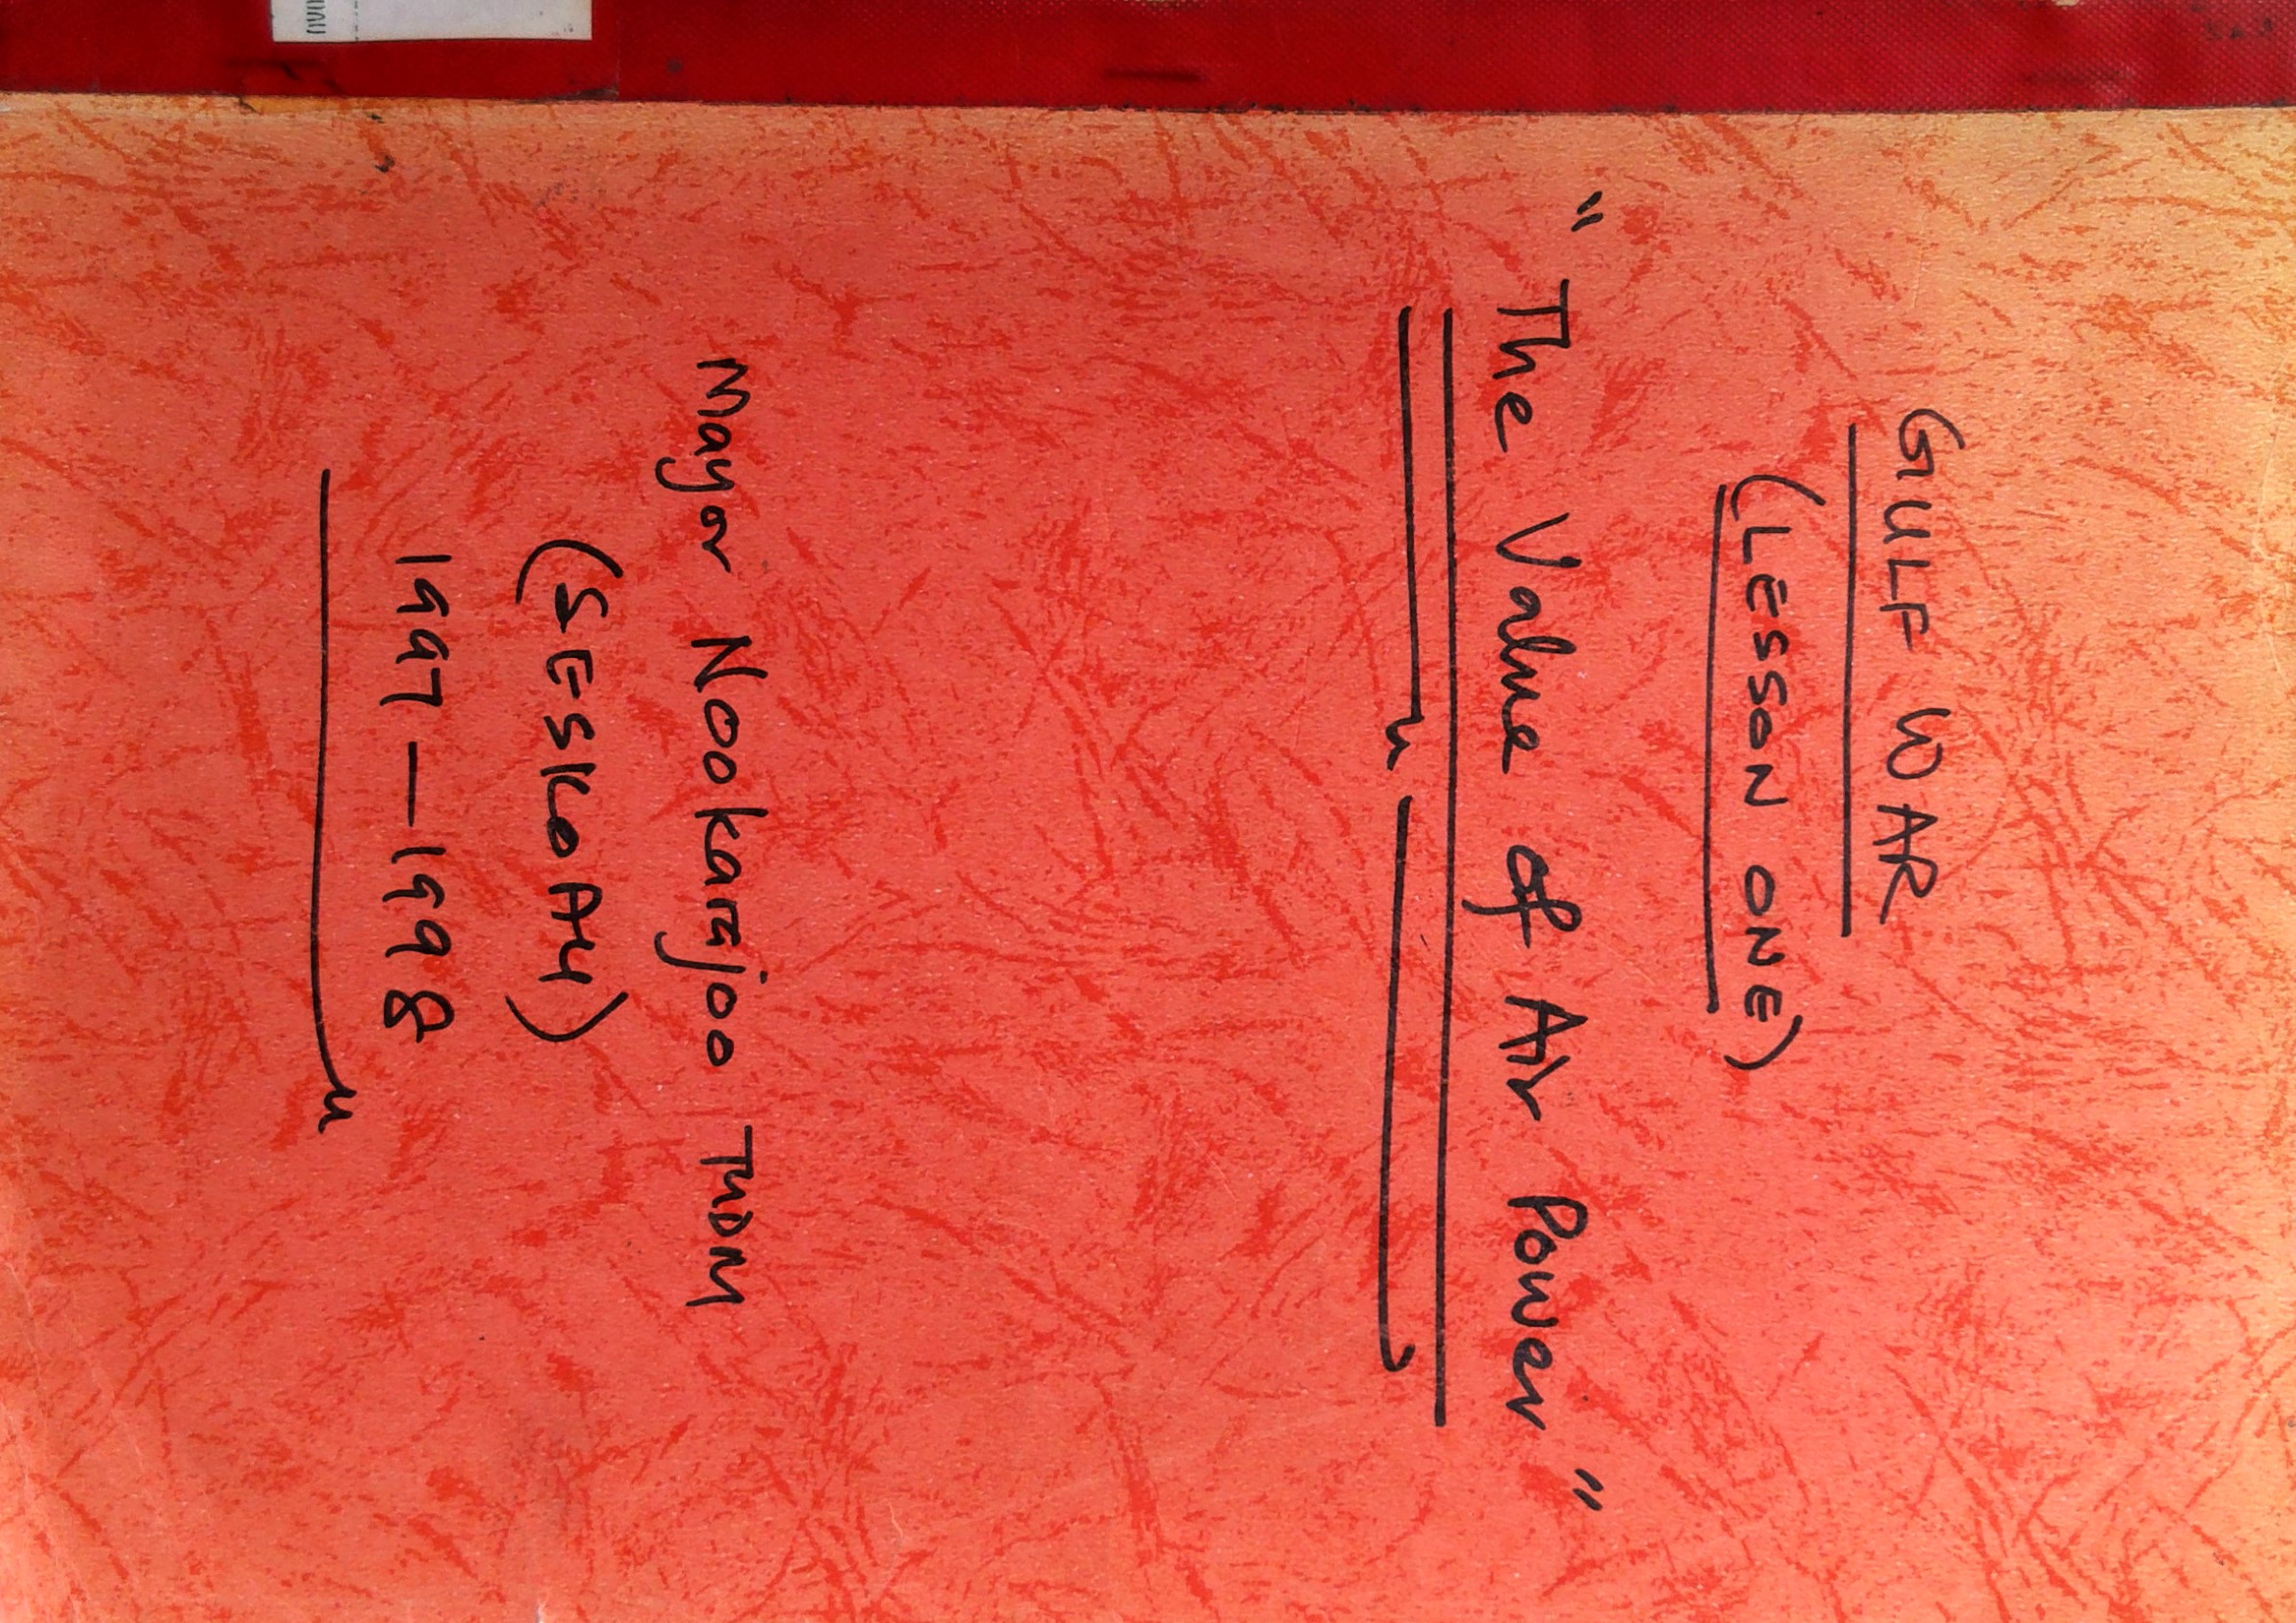 GULF WAR
(LESSON ONE)
" The Value of Air Power "
Mayor Nookarajoo TUDM
(SESKOAU)
1997 — 1998